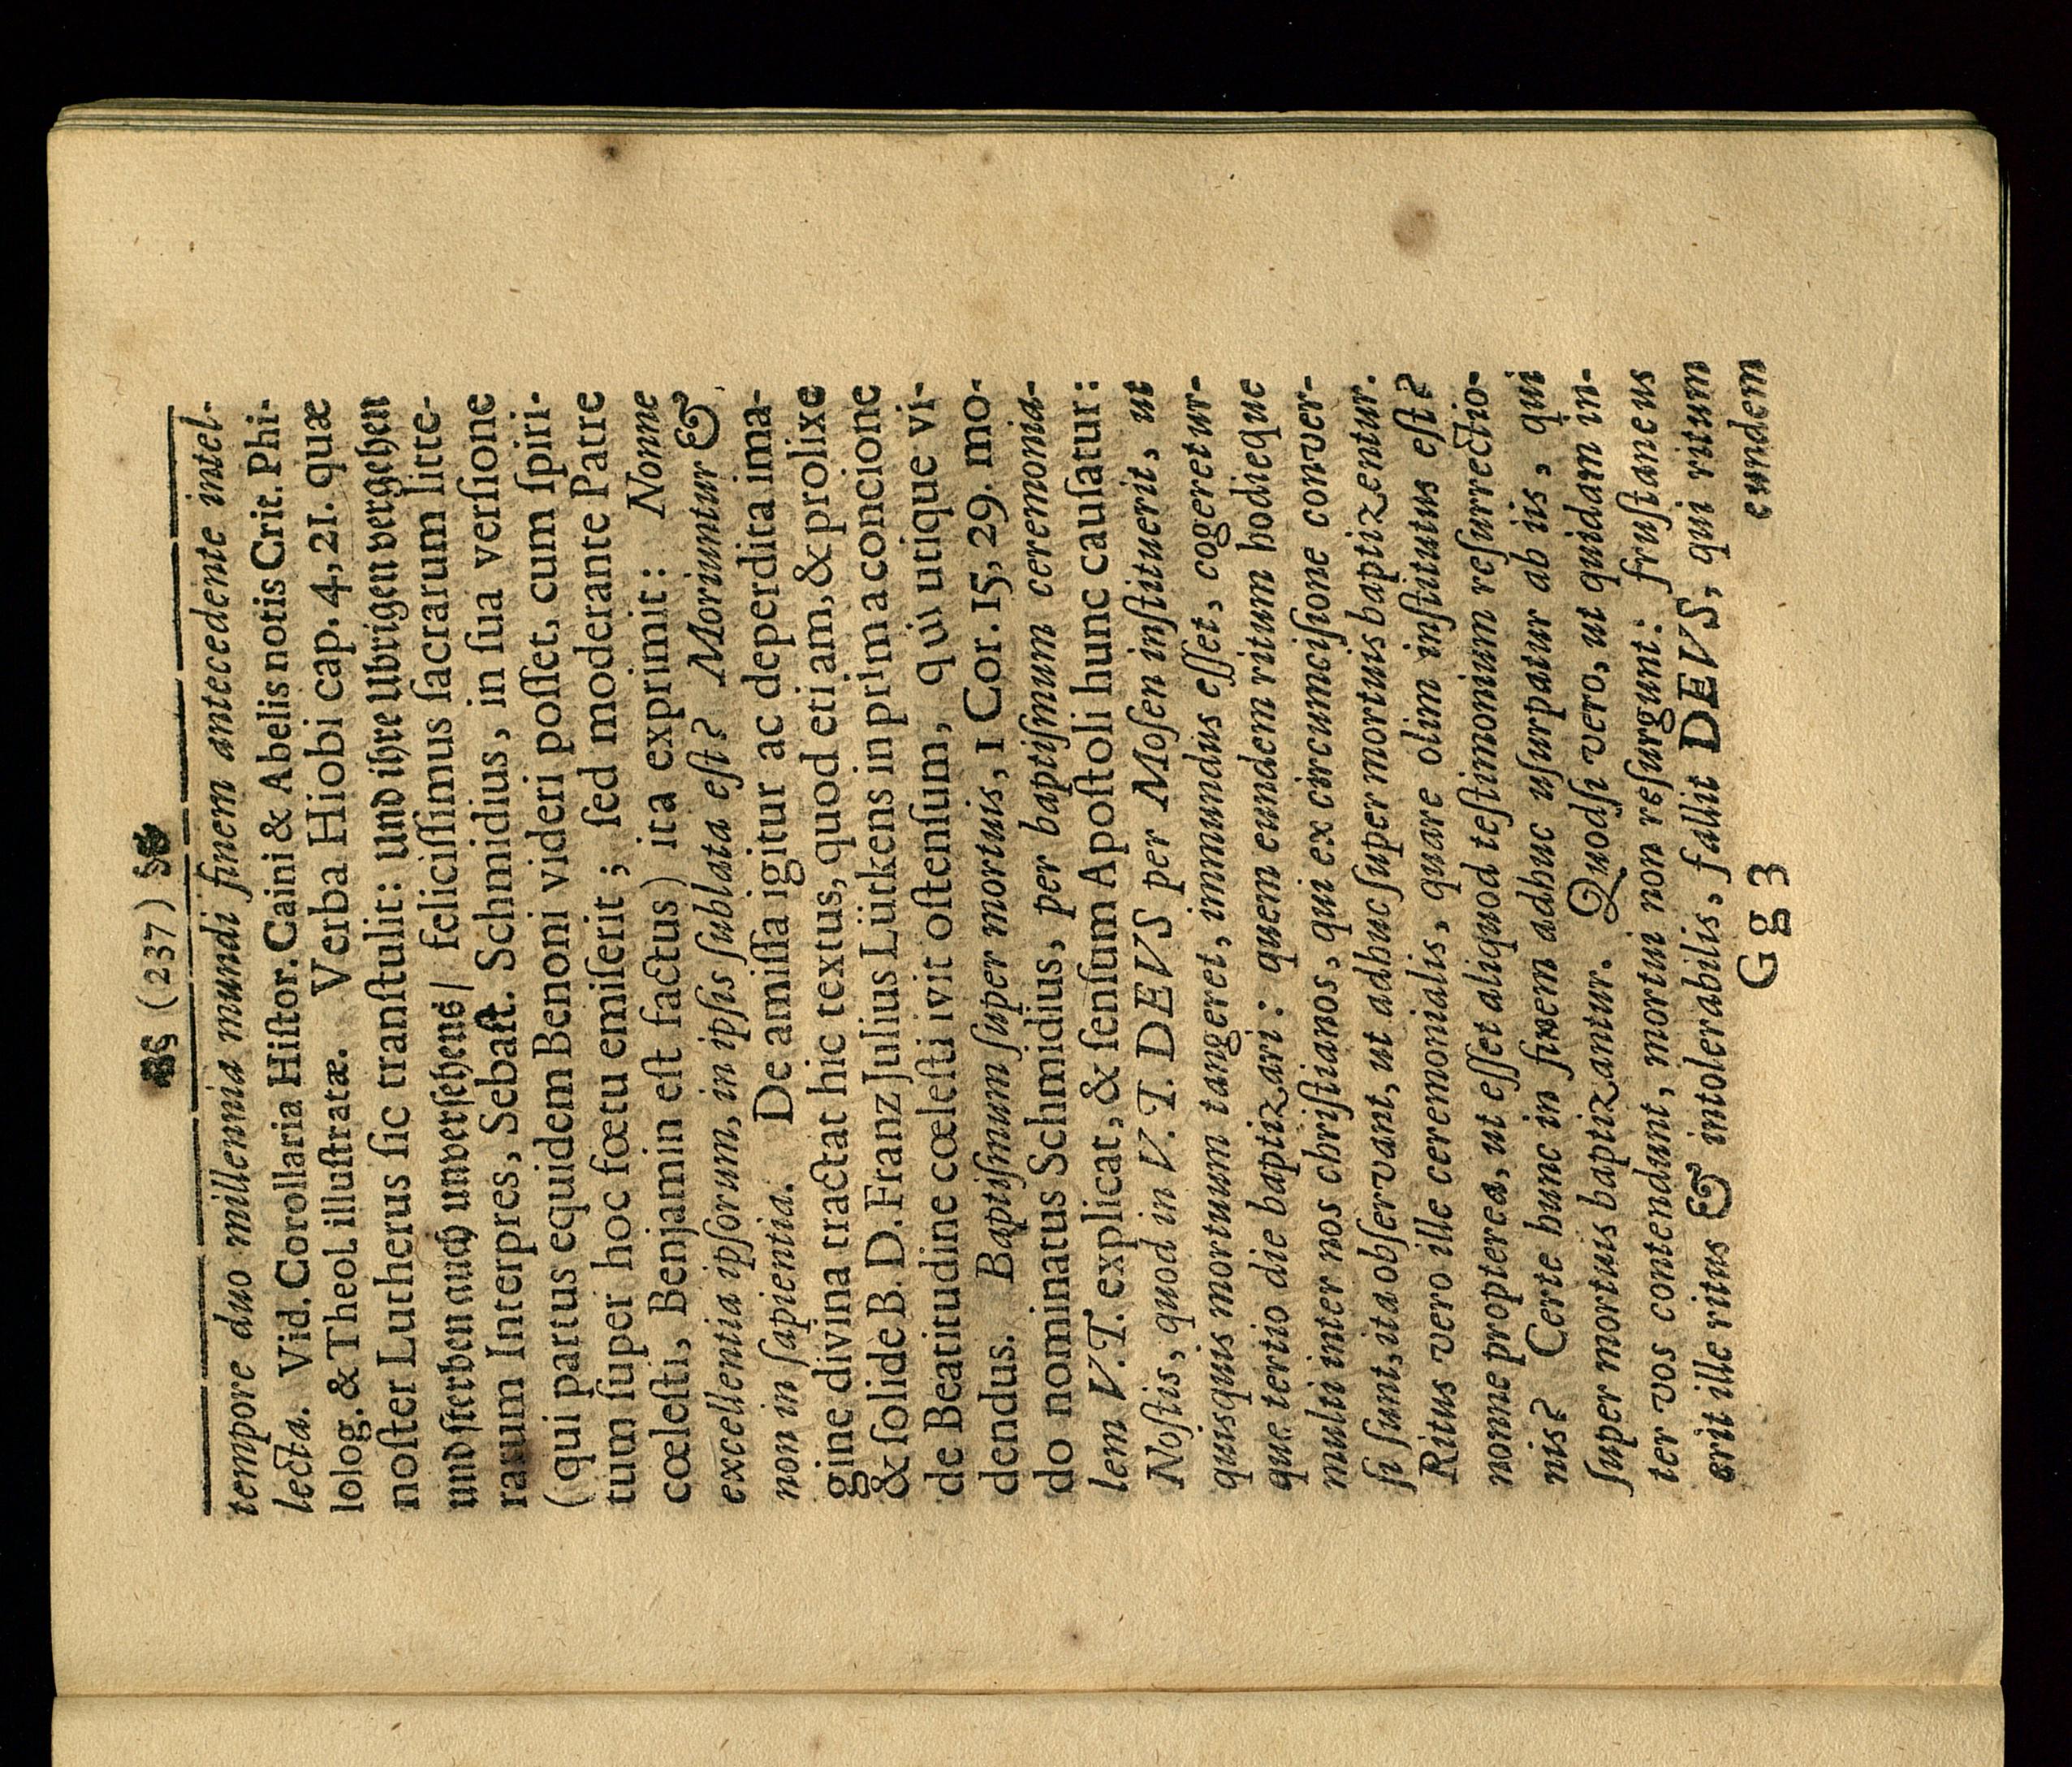 (237)
tempore duo millennia mundi finem antecedente intel-
lecta. Vid. Corollaria Hiſtor. Caini & Abelis notis Crit. Phi-
lolog. & Theol. illuſtratæ. Verba Hiobi cap. 4, 21. quæ
noſter Lutherus ſic tranſtulit: und ihre Ubrigen vergehen
und ſterben auch unverſehens/ feliciſſimus ſacrarum litte-
rarum Interpres, Sebaſt. Schmidius, in ſua verſione
(qui partus equidem Benoni videri poſſet, cum ſpiri-
tum ſuper hoc fœtu emiſerit; ſed moderante Patre
cœleſti, Benjamin eſt factus) ita exprimit: Nonne
excellentia ipſorum, in ipſis ſublata eſt? Moriuntur &
non in ſapientia. De amiſſa igitur ac deperdita ima-
gine divina tractat hic textus, quod etiam, & prolixe
& ſolide B. D. Franz Julius Lütkens in prima concione
de Beatitudine cœleſti ivit oſtenſum, qui utique vi-
dendus. Baptiſmum ſuper mortuis, 1 Cor. 15, 29. mo-
do nominatus Schmidius, per baptiſmum ceremonia-
lem V. T. explicat, & ſenſum Apoſtoli hunc cauſatur:
Noſtis, quod in V. T. DEVS per Moſen inſtituerit, ut
quisquis mortuum tangeret, immundus eſſet, cogeretur-
que tertio die baptizari: quem eundem ritum hodieque
multi inter nos chriſtianos, qui ex circumciſione conver-
ſi ſunt, ita obſervant, ut adhuc ſuper mortuis baptizentur.
Ritus vero ille ceremonialis, quare olim inſtitutus eſt?
nonne propterea, ut eſſet aliquod teſtimonium reſurrectio-
nis? Certe hunc in finem adhuc uſurpatur ab iis, qui
ſuper mortuis baptizantur. Quodſi vero, ut quidam in-
ter vos contendunt, mortui non reſurgunt: fruſtaneus
erit ille ritus & intolerabilis, fallit DEVS, qui ritum
Gg 3 eundem